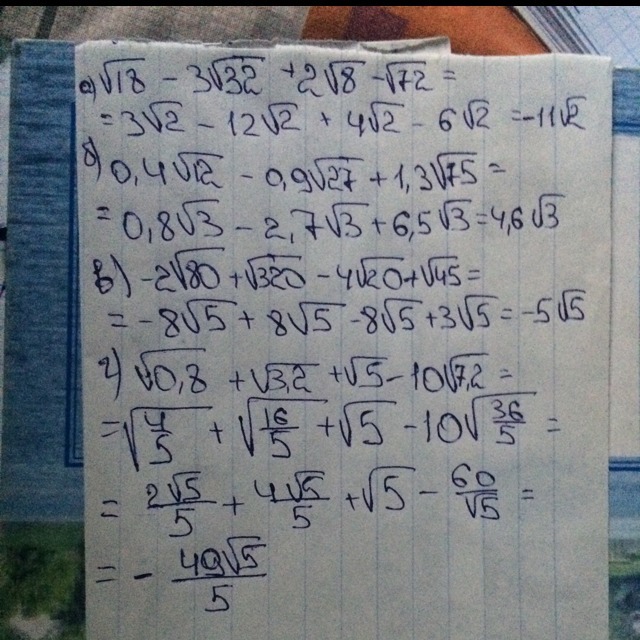 а) √18 - 3√32 + 2√8 - √72 =
= 3√2 - 12√2 + 4√2 - 6√2 = -11√2
б) 0,4√12 - 0,9√27 + 1,3√75 =
= 0,8√3 - 2,7√3 + 6,5√3 = 4,6√3
в) -2√80 + √320 - 4√20 + √45 =
= -8√5 + 8√5 - 8√5 + 3√5 = -5√5
г) √0,8 + √3,2 + √5 - 10√7,2 =
= √4/5 + √16/5 + √5 - 10√36/5 =
= 2√5/5 + 4√5/5 + √5 - 60/√5 =
= - 49√5/5